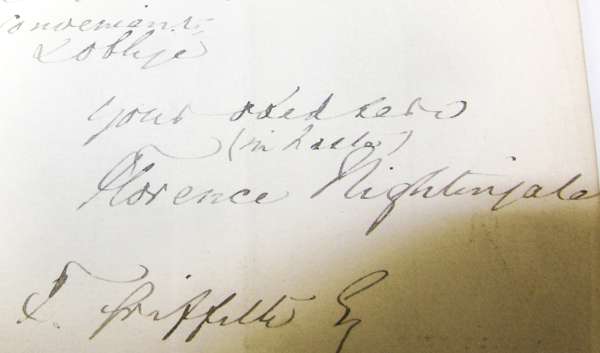 convenient,
& oblige
your obed serv
(in haste)
Florence Nightingale
T. Griffith Esq